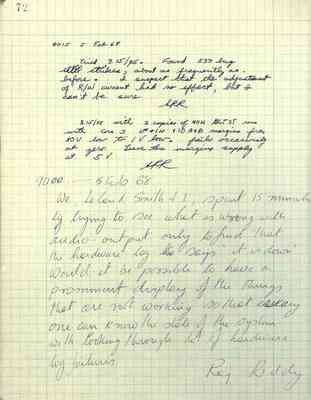 72
0015 5 Feb 68
Tried 315/75. Found 533 bug
still strikes, about as frequently as
before. I suspect that the adjustment
of R/W current had no effect, but I
can't be sure.
with 2 copies of
with core 3 margins from
10V low to 1V low. Fails occasionally
at zero. Turn the margins supply
at 5V.
9/00 5 Feb 68
We, Leland Smith & I, spent 15 minutes
by trying to see what is wrong with
audio output only to find that
the hardware log says it is down
Would it be possible to have a
prominent display of the things
that are not working so that every
one can know the state of the system
with looking through lot of hardware
log failures.
Raj Reddy